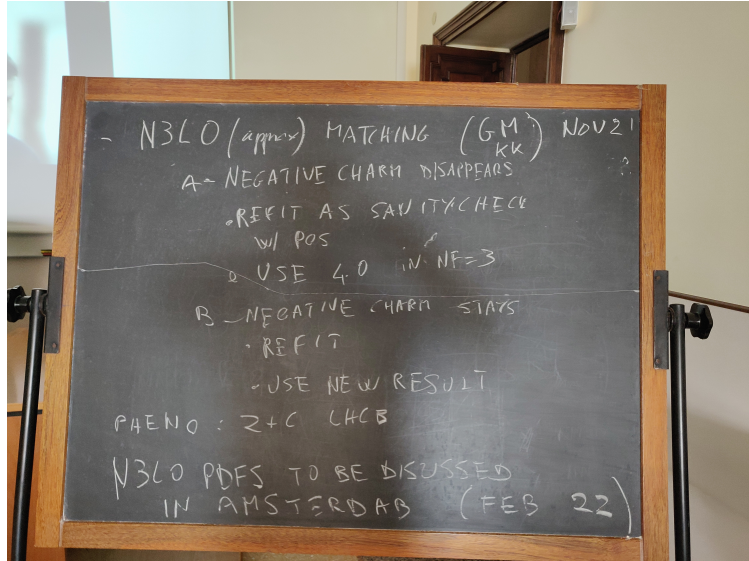 - N3LO (approx) MATCHING (GM KK) NOV 21
A - NEGATIVE CHARM DISAPPEARS
• REFIT AS SANITYCHECK
W/ POS
• USE 4.0 IN NF=3
B - NEGATIVE CHARM STAYS
• REFIT
• USE NEW RESULT
PHENO : Z+C LHCB
N3LO PDFS TO BE DISUSSED
IN AMSTERDAB (FEB 22)